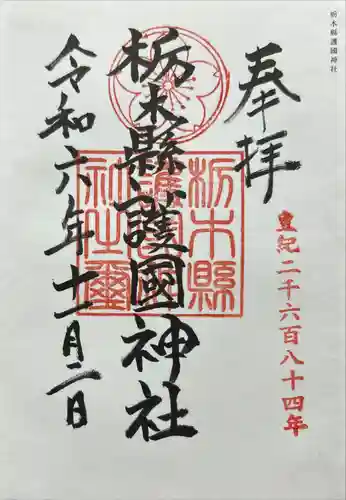 栃木縣護國神社
奉拝
皇紀二千六百八十四年
栃木縣護國神社
栃木縣護國神社之璽
令和六年十一月二日